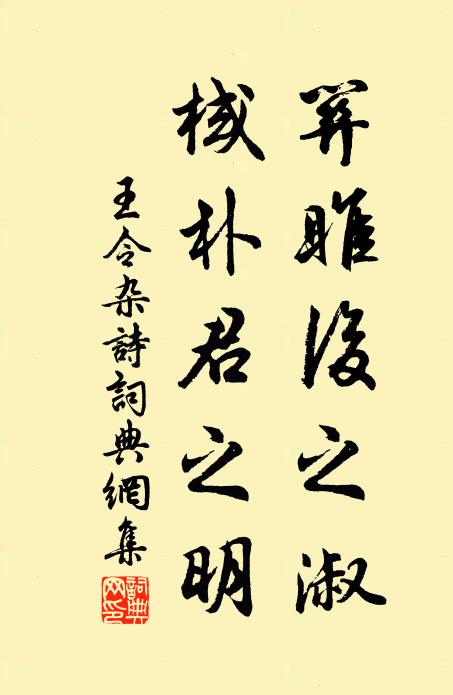 關雎後之淑
棫朴君之明
王令杂詩詞典網集
詞典网印